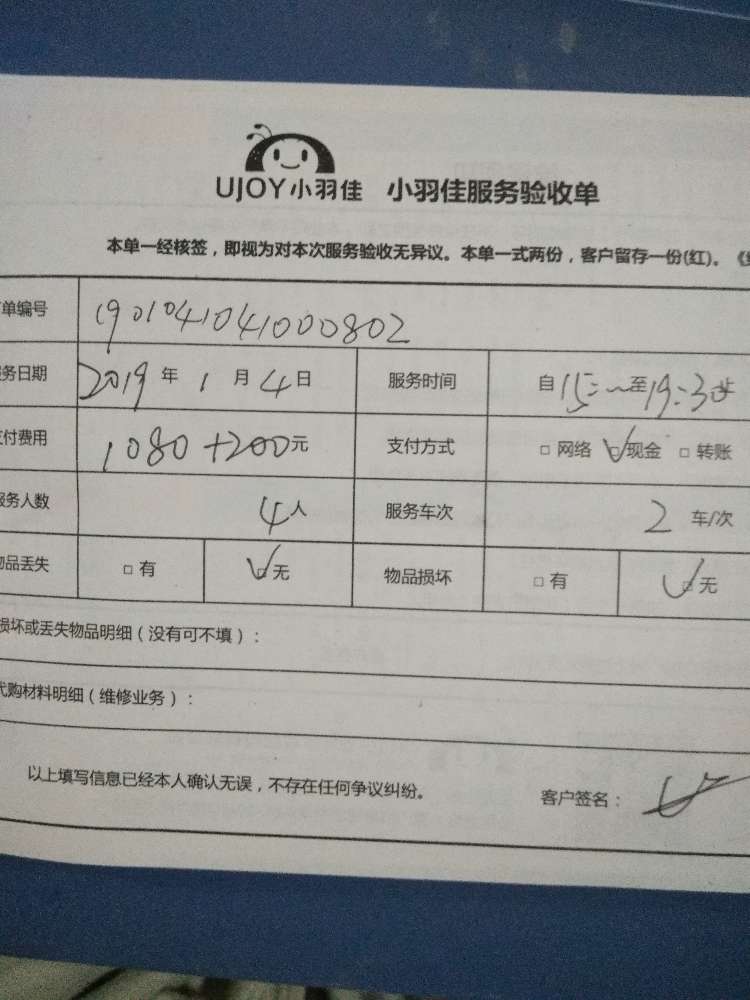 UJOY小羽佳 小羽佳服务验收单
本单一经核签，即视为对本次服务验收无异议。本单一式两份，客户留存一份(红)。《
单编号 19010410410000802
务日期 2019年1月4日 服务时间 自15:~至19:30止
付费用 1080+200元 支付方式 □网络 □现金 □转账
服务人数 4人 服务车次 2车/次
物品丢失 □有 □无 物品损坏 □有 □无
损坏或丢失物品明细（没有可不填）：
代购材料明细（维修业务）：
以上填写信息已经本人确认无误，不存在任何争议纠纷。 客户签名：